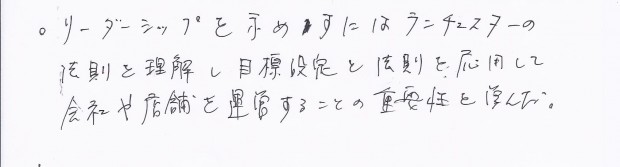 。リーダーシップを求めすにはランチェスターの
法則を理解し目標設定と法則を応用して
会社や店舗を運営することの重要性を学んだ。